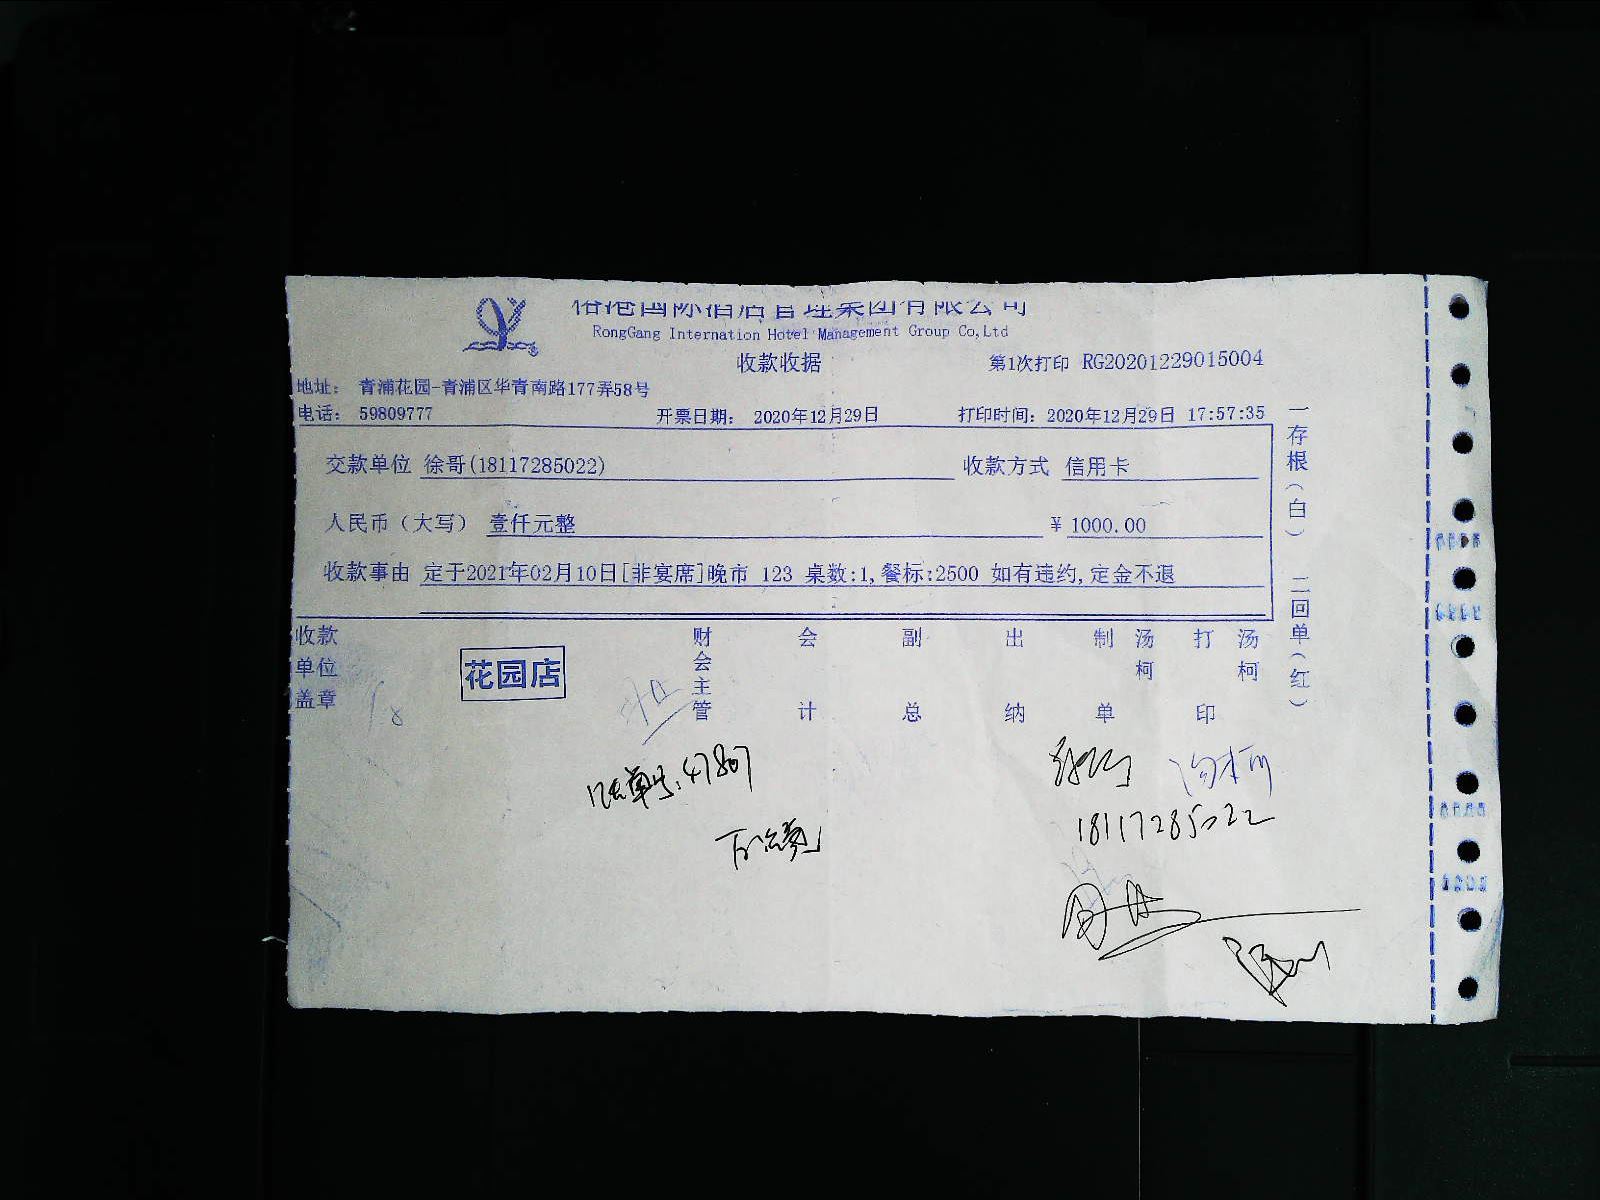 国际酒店管理集团有限公司
RongGang Internation Hotel Management Group Co,Ltd
收款收据
第1次打印 RG20201229015004
地址: 青浦花园-青浦区华青南路177弄58号
电话: 59809777 开票日期: 2020年12月29日 打印时间: 2020年12月29日 17:57:35
交款单位 徐哥(18117285022) 收款方式 信用卡
人民币(大写) 壹仟元整 ¥ 1000.00
收款事由 定于2021年02月10日[非宴席]晚市 123 桌数:1,餐标:2500 如有违约,定金不退
一存根(白) 二回单(红)
收款单位盖章
花园店
财会主管 会计 副总 出纳 制单 汤柯 打印 汤柯
汤柯
18117285022